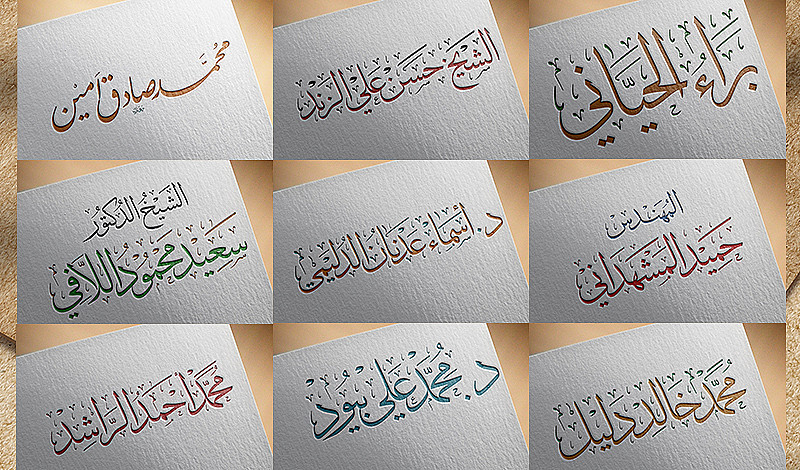 محمد صادق أمين
الشيخ حسن علي الزند
براء الحياني
الشيخ الدكتور
سعيد محمود اللافي
د. أسماء عدنان الدليمي
المهندس
حميد المشهداني
محمد أحمد الراشد
د. محمد علي بيود
محمد خالد دليل